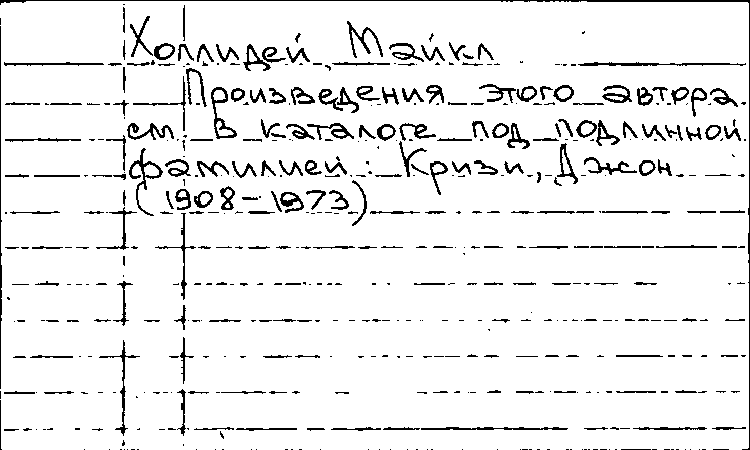 Холлидей, Майкл
Произведения этого автора
см. в каталоге под подлинной
фамилией: Кризи, Джон
(1908-1973)